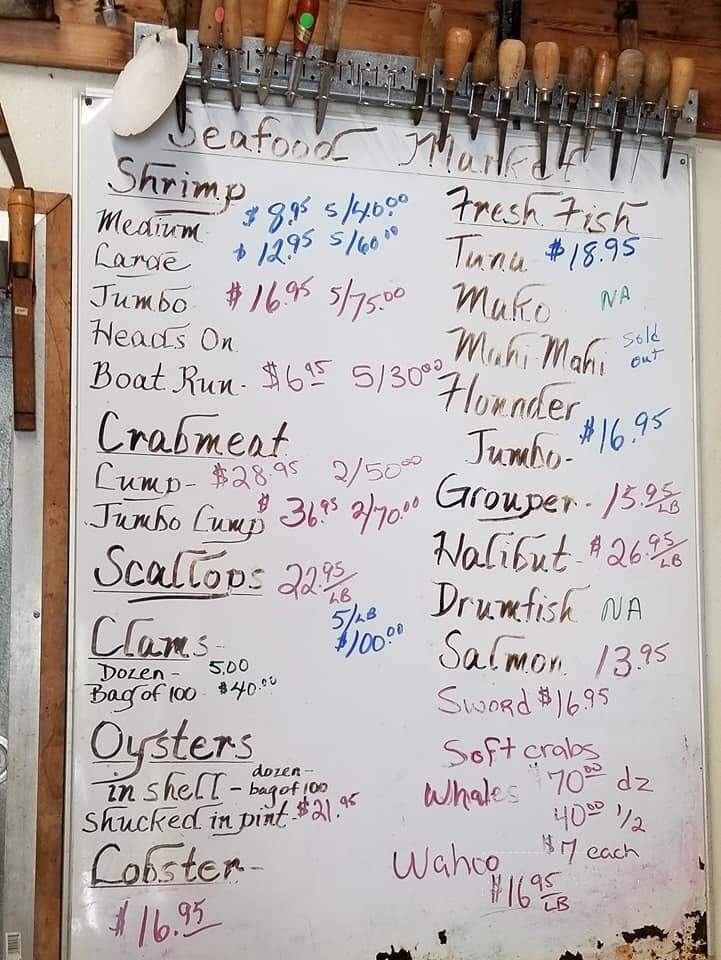 Seafood Market
Shrimp
Medium $8.95 5/40.00
Large $12.95 5/60.00
Jumbo $16.95 5/75.00
Heads On
Boat Run - $6.95 5/30.00
Crabmeat
Lump - $28.95 2/50.00
Jumbo Lump $36.95 2/70.00
Scallops 22.95/LB
5/LB
$100.00
Clams -
Dozen - 5.00
Bag of 100 $40.00
Oysters
in shell - dozen -
- bag of 100
Shucked in pint - $21.95
Lobster -
$16.95
Fresh Fish
Tuna $18.95
Mako NA
Mahi Mahi Sold out
Flounder
Jumbo - $16.95
Grouper - 15.95/LB
Halibut - $26.95/LB
Drumfish NA
Salmon 13.95
Sword $16.95
Soft crabs
Whales 70.00 dz
40.00 1/2
$7 each
Wahoo
$16.95/LB